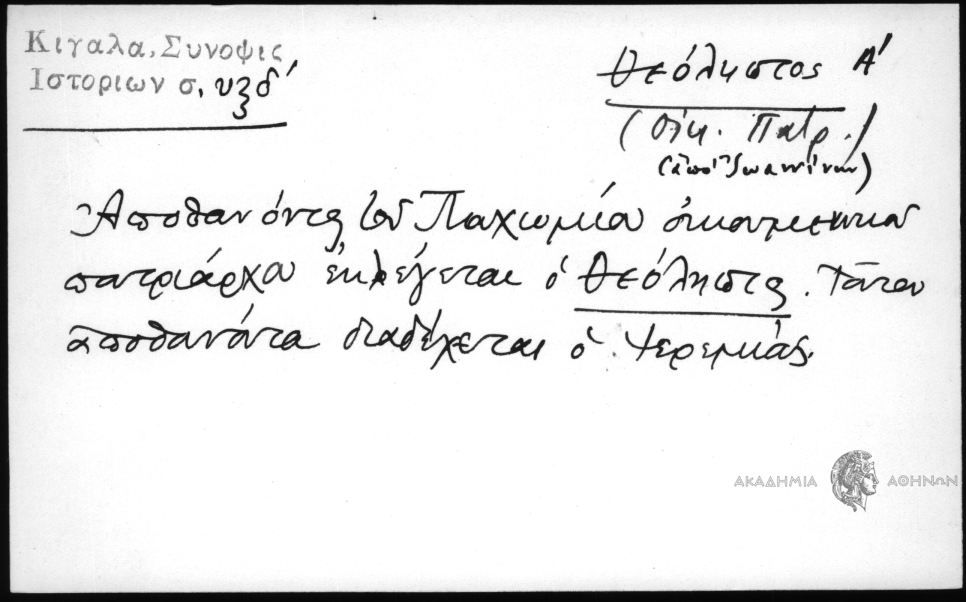 Κιγαλα, Συνοψις
Ιστοριων σ. υξδ'
Θεόληπτος Α'
(Οἰκ. Πατρ.)
(ἀπὸ Ἰωαννίνων)
Ἀποθανόντος τοῦ Παχωμίου οἰκουμενικοῦ
πατριάρχου ἐκλέγεται ὁ Θεόληπτος. Τοῦτον
ἀποθανόντα διαδέχεται ὁ Ἱερεμίας.
ΑΚΑΔΗΜΙΑ ΑΘΗΝΩΝ